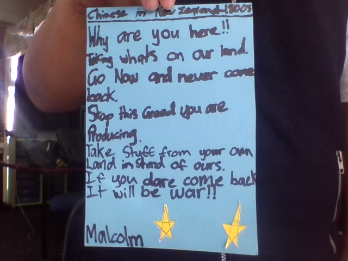 Chinese in New Zealand 1800s
Why are you here!!
Taking whats on our land.
Go Now and never come
back.
Stop this Greed you are
Producing.
Take Stuff from your own
Land instead of ours.
If you dare come back
It will be war!!
Malcolm